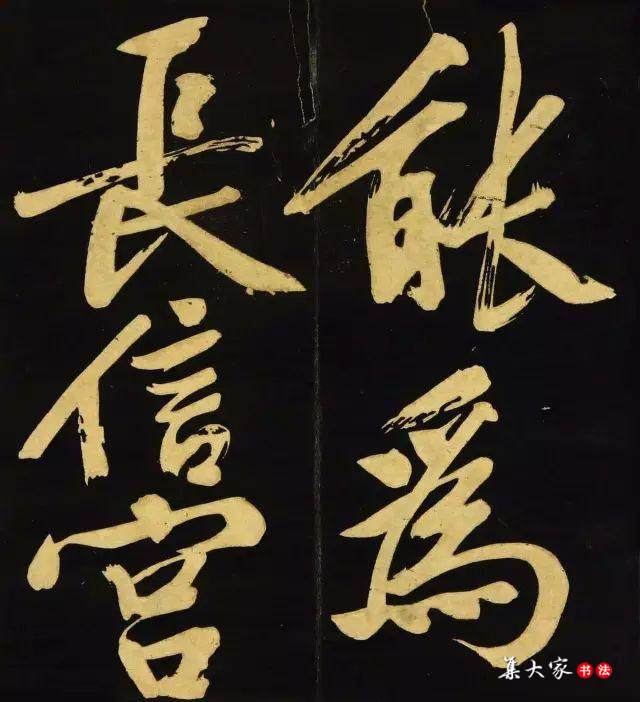 能為
長信宮
集大家书法